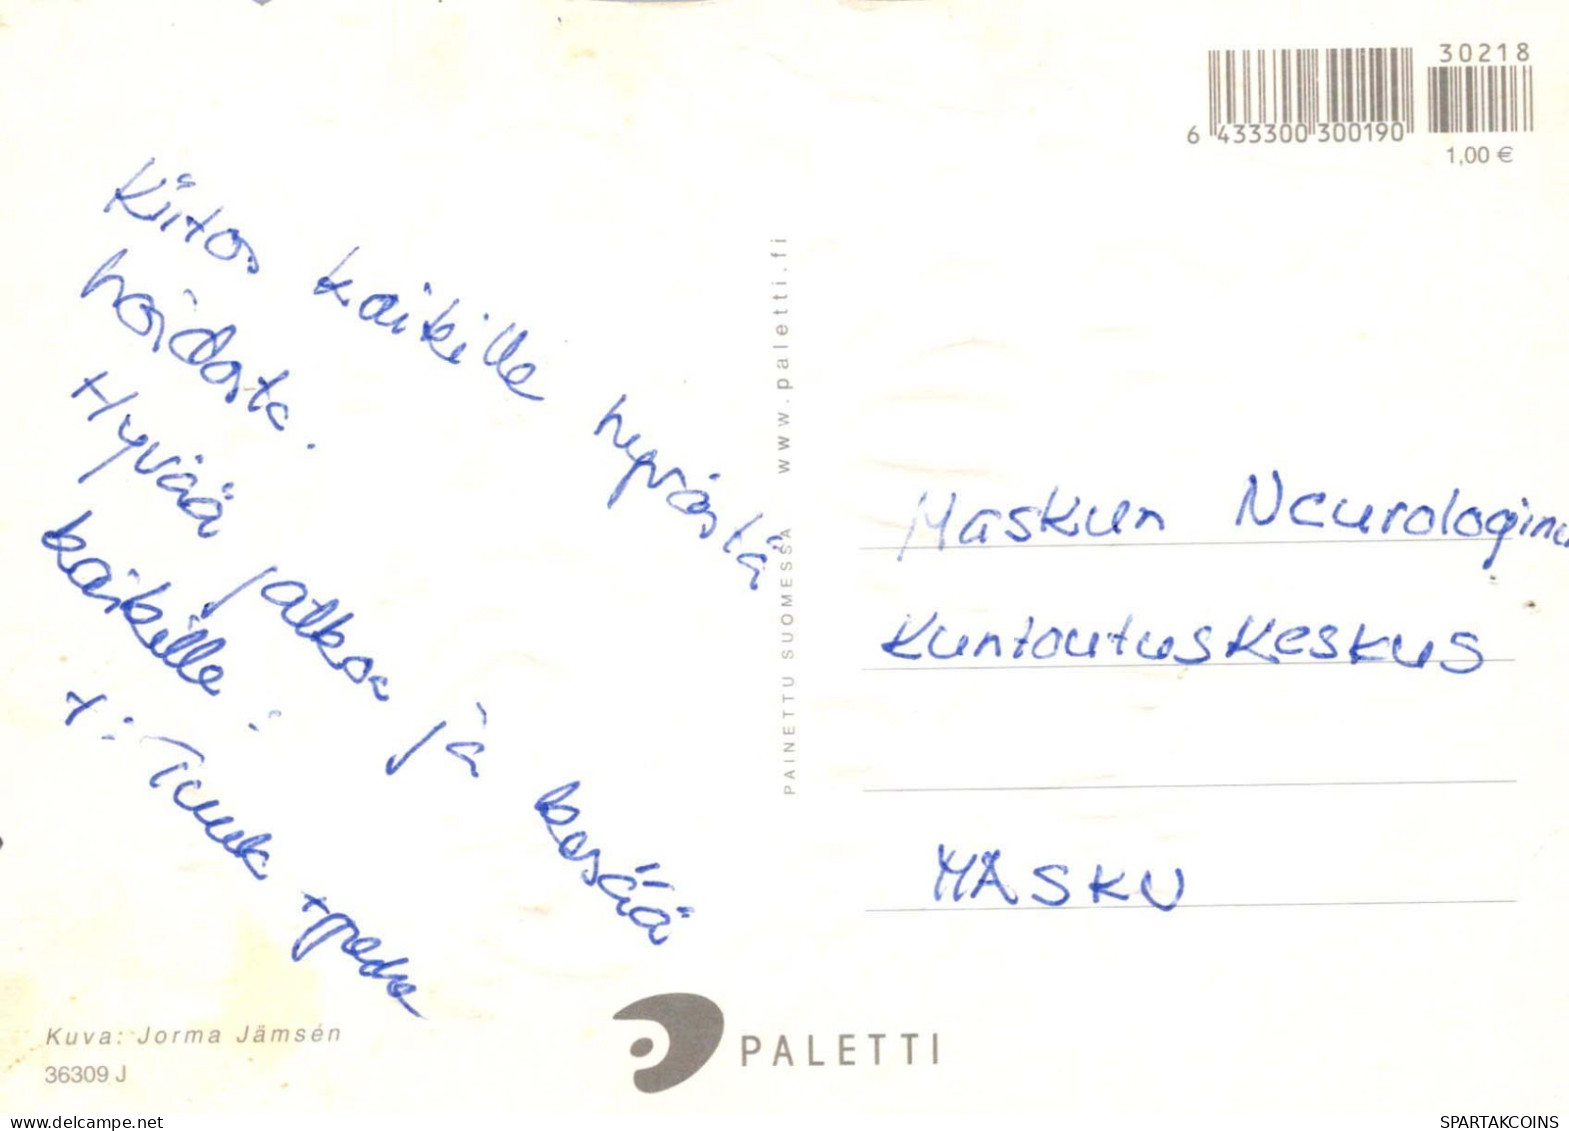 30218
6 433300 300190
1,00 €
Kiitos kaikille hyvästä
hoidosta.
Hyvää jatkoa ja kesää
kaikille :
t:
PAINETTU SUOMESSA www.paletti.fi
Maskun
Kuntoutuskeskus
MASKU
Kuva: Jorma Jämsén
36309 J
PALETTI
SPARTAKCOINS
delcampe.net